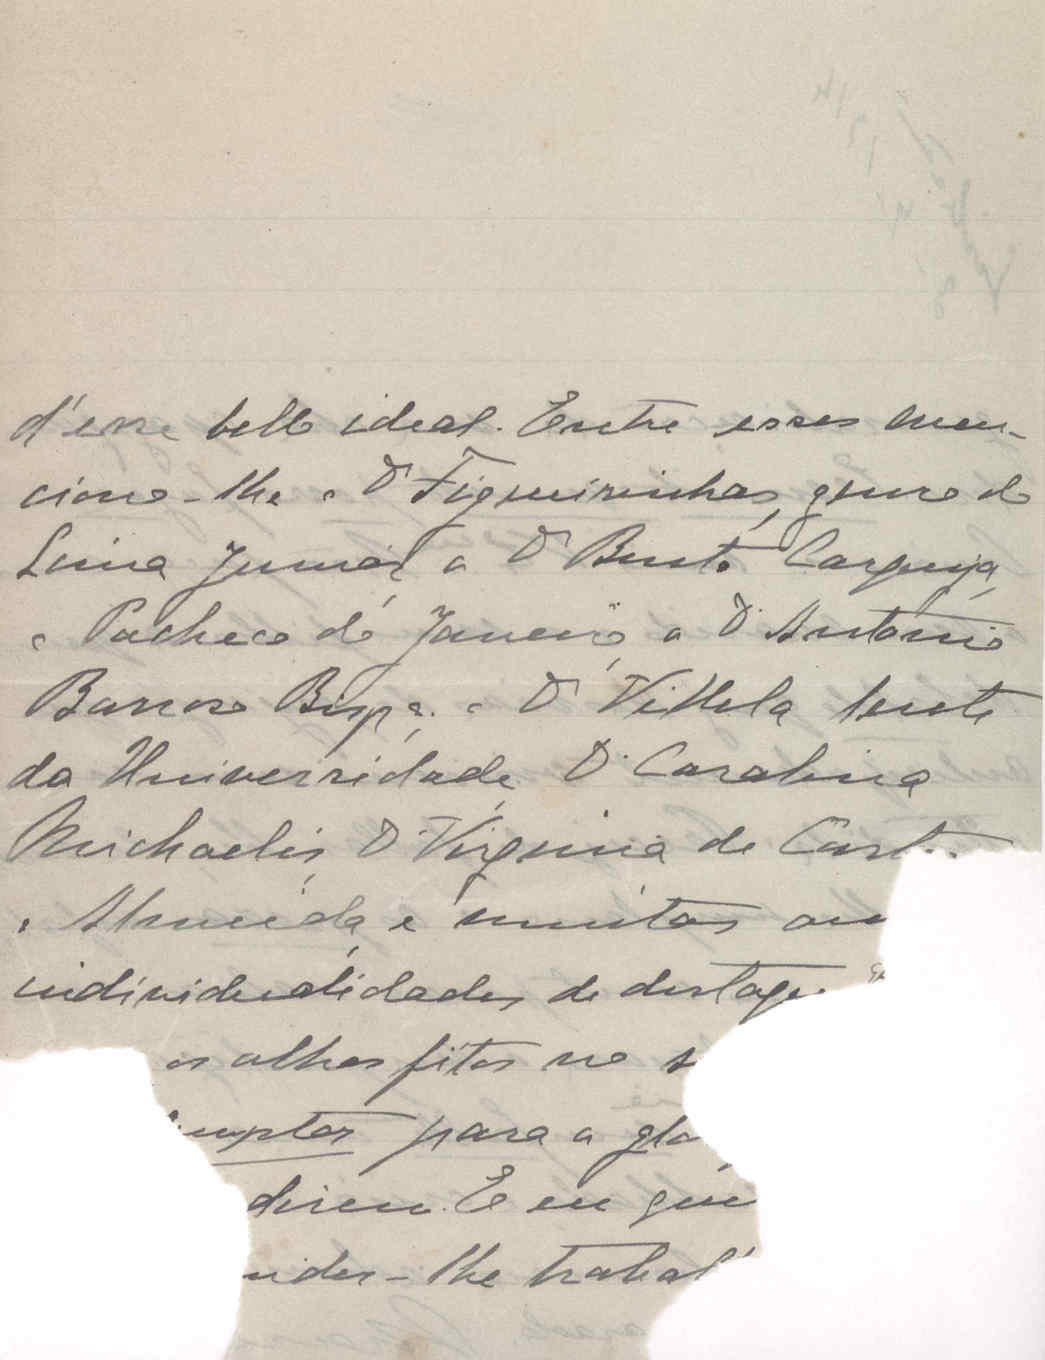 d'esse bello ideal. Entre esses men-
ciono-lhe o Dr Figueirinhas, genro do
Lima Junior, o Dr Bento Carqueja,
o Pacheco do Janeiro, o D. Antonio
Barroso Bispo, o Dr Villela lente
da Universidade, D. Carolina
Michaelis, D. Virginia de Cast
e Almeida, e muitas ou
individualidades de destaque
os olhos fitos no s
umptos para a glo
direm. E eu que
nder-lhe trabal